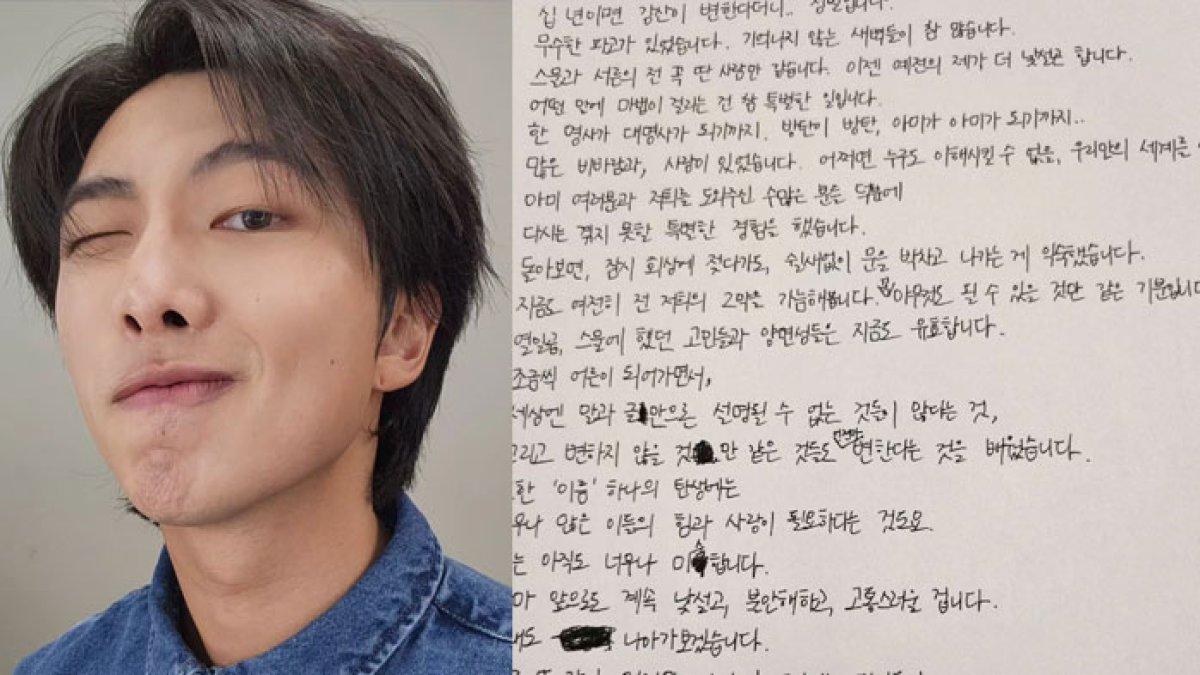 십 년이면 강산이 변한다더니.. 정말입니다.
무수한 파고가 있었습니다. 기억나지 않는 새벽들이 참 많습니다.
스물과 서른의 전 꼭 딴 사람만 같습니다. 이젠 예전의 제가 더 낯설곤 합니다.
어떤 말에 마법이 걸리는 건 참 특별한 일입니다.
한 명사가 대명사가 되기까지. 방탄이 방탄, 아미가 아미가 되기까지..
많은 비바람과, 사랑이 있었습니다. 어쩌면 누구도 이해시킬 수 없을, 우리만의 세계를
아미 여러분과 저희를 도와주신 수많은 분들 덕분에
다시는 겪지 못할 특별한 경험을 했습니다.
돌아보면, 잠시 회상에 젖다가도, 쉴새없이 문을 박차고 나가는 게 익숙했습니다.
지금도 여전히 전 저희의 2막을 가늠해봅니다. 꼭 아무것도 될 수 있을 것만 같은 기분입니다
열일곱, 스물에 했던 고민들과 양면성들은 지금도 유효합니다.
조금씩 어른이 되어가면서,
세상엔 말과 글만으론 설명될 수 없는 것들이 많다는 것,
그리고 변하지 않을 것만 같은 것들도 언젠간 변한다는 것을 배웠습니다.
또한 '이름' 하나의 탄생에는
너무나 많은 이들의 힘과 사랑이 필요하다는 것도요.
는 아직도 너무나 미숙합니다.
마 앞으로도 계속 낯설고, 불안해하고, 고통스러울 겁니다.
래도 나아가보겠습니다.